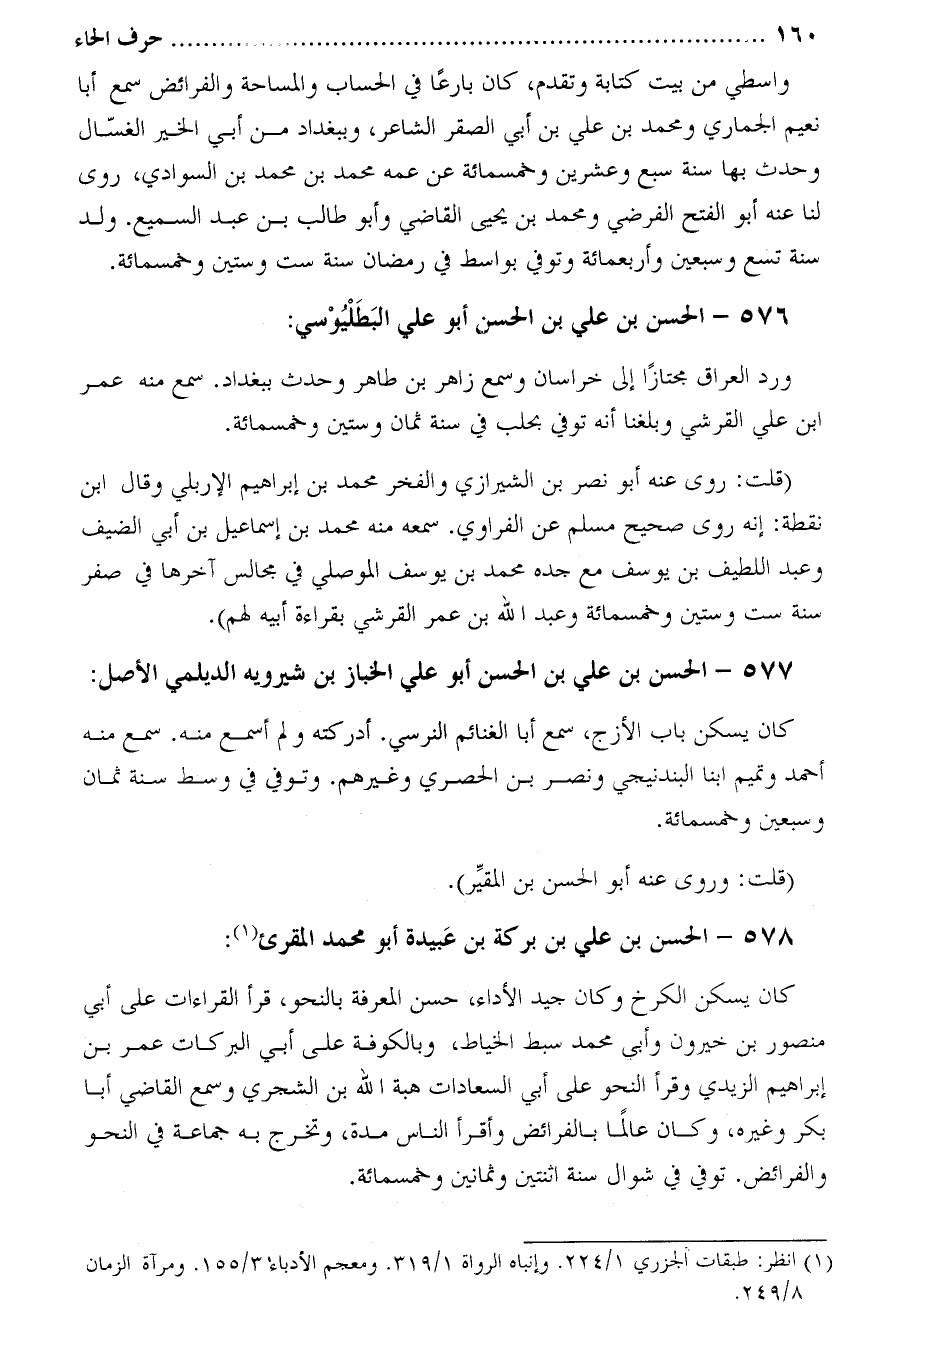 ١٦٠ ........................................................................ حرف الحاء
واسطي من بيت كتابة وتقدم، كان بارعًا في الحساب والمساحة والفرائض سمع أبا
نعيم الجماري ومحمد بن علي بن أبي الصقر الشاعر، وببغداد من أبي الخير الغسّال
وحدث بها سنة سبع وعشرين وخمسمائة عن عمه محمد بن محمد بن السوادي، روى
لنا عنه أبو الفتح الفرضي ومحمد بن يحيى القاضي وأبو طالب بن عبد السميع. ولد
سنة تسع وسبعين وأربعمائة وتوفي بواسط في رمضان سنة ست وستين وخمسمائة.
٥٧٦ – الحسن بن علي بن الحسن أبو علي البَطَلْيُوْسي:
ورد العراق مجتازًا إلى خراسان وسمع زاهر بن طاهر وحدث ببغداد. سمع منه عمر
ابن علي القرشي وبلغنا أنه توفي بحلب في سنة ثمان وستين وخمسمائة.
(قلت: روى عنه أبو نصر بن الشيرازي والفخر محمد بن إبراهيم الإربلي وقال ابن
نقطة: إنه روى صحيح مسلم عن الفراوي. سمعه منه محمد بن إسماعيل بن أبي الضيف
وعبد اللطيف بن يوسف مع جده محمد بن يوسف الموصلي في مجالس آخرها في صفر
سنة ست وستين وخمسمائة وعبد الله بن عمر القرشي بقراءة أبيه لهم).
٥٧٧ – الحسن بن علي بن الحسن أبو علي الخباز بن شيرويه الديلمي الأصل:
كان يسكن باب الأزج، سمع أبا الغنائم النرسي. أدركته ولم أسمع منه. سمع منه
أحمد وتميم ابنا البندنيجي ونصر بن الحصري وغيرهم. وتوفي في وسط سنة ثمان
وسبعين وخمسمائة.
(قلت: وروى عنه أبو الحسن بن المقيِّر).
٥٧٨ – الحسن بن علي بن بركة بن عَبيدة أبو محمد المقرئ(١):
كان يسكن الكرخ وكان جيد الأداء، حسن المعرفة بالنحو، قرأ القراءات على أبي
منصور بن خيرون وأبي محمد سبط الخياط، وبالكوفة على أبي البركات عمر بن
إبراهيم الزيدي وقرأ النحو على أبي السعادات هبة الله بن الشجري وسمع القاضي أبا
بكر وغيره، وكان عالمًا بالفرائض وأقرأ الناس مدة، وتخرج به جماعة في النحو
والفرائض. توفي في شوال سنة اثنتين وثمانين وخمسمائة.
(١) انظر: طبقات الجزري ٢٢٤/١. وإنباه الرواة ٣١٩/١. ومعجم الأدباء ١٥٥/٣. ومرآة الزمان
٢٤٩/٨.